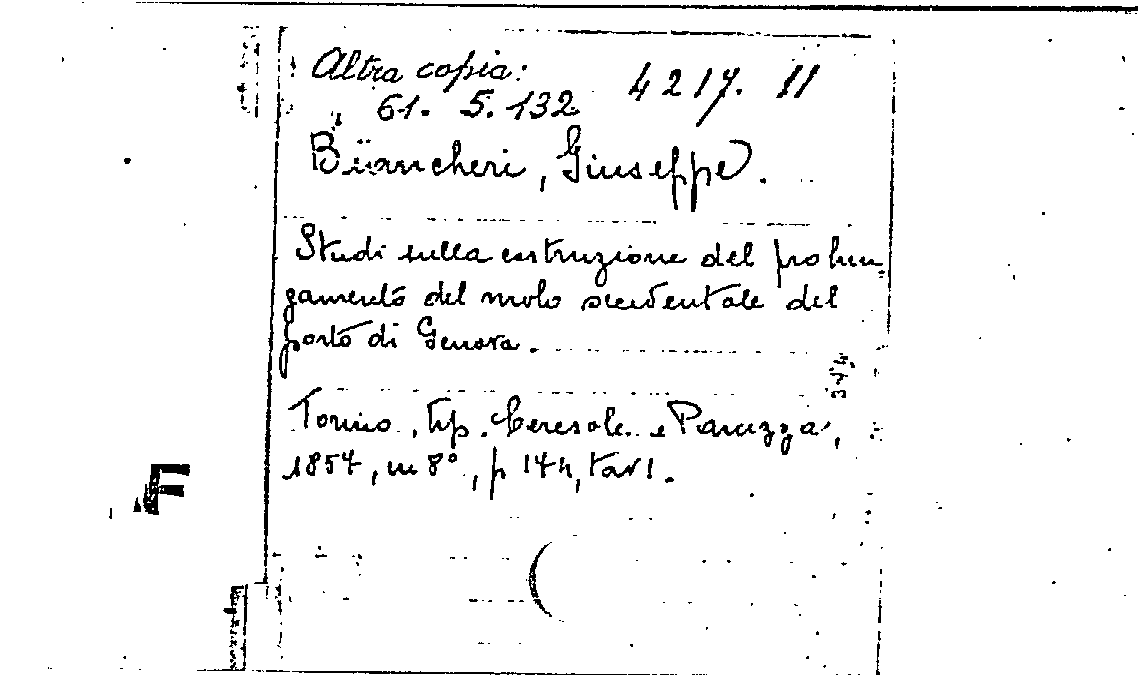 Altra copia:
61. 5. 132 4217. 11
Biancheri, Giuseppe.
Studi sulla costruzione del prolun-
gamento del molo occidentale del
porto di Genova.
Torino, tip. Ceresole e Panizza,
1857, in 8°, p 144, tav 1.
F